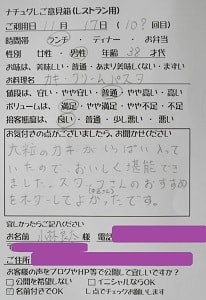 ナチュグレご意見箱(レストラン用)
ご利用日 11月 17日 (10?回)
時間帯 ランチ ・ ティナー ・ お弁当
性別 女性 ・ 男性 年齢 38 才代
お味は、美味しい・普通・あまり美味しくない・まずい
お料理名 カキ・クリームパスタ
値段は、安い・やや安い・普通・やや高い・高い
ボリュームは、満足・やや満足・やや不足・不足
接客態度は、良い・普通・悪い・その他
お気付きの点がございましたら、お聞かせください
大粒のカキがいっぱい入っ
ていたので、おいしく堪能でき
ました。スタッフさんのおすすめ
をオーダーしてよかったです。
宜しかったらご記入ください
お名前 様 電話
ご住所
お客様の声をブログやHP等で公開して宜しいですか?
□公開を希望しない □イニシャルならOK
☑名前付きでOK し点でチェックお願いします